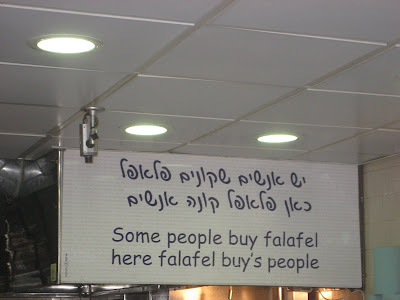 יש אנשים שקונים פלאפל
כאן פלאפל קונה אנשים
Some people buy falafel
here falafel buy's people